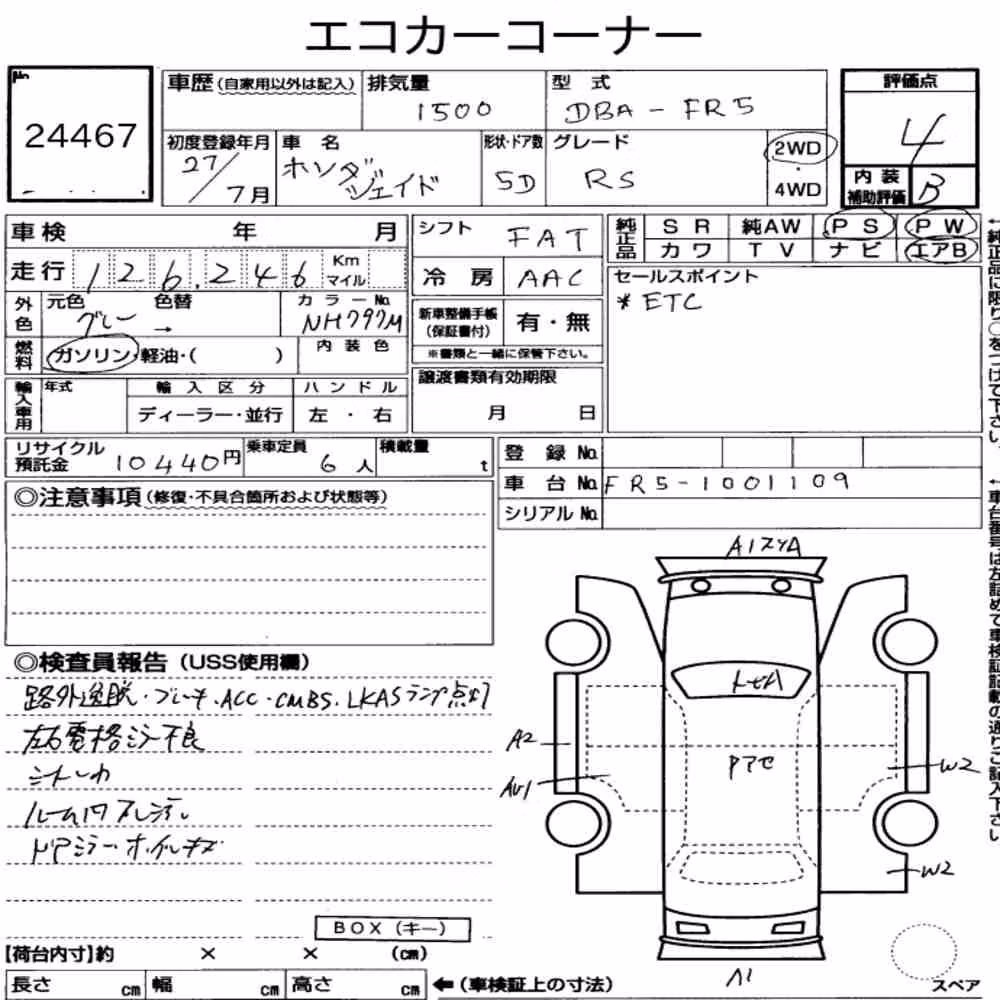 エコカーコーナー
No
24467
車歴(自家用以外は記入) 排気量 1500 型式 DBA-FR5
初度登録年月 27/7月 車名 ホンダ ジェイド 形状・ドア数 5D グレード RS 2WD 4WD
評価点 4
内装補助評価 B
車検 年 月
走行 126,246 Km マイル
外色 元色 グレー 色替 → カラーNo. NH797M
燃料 ガソリン・軽油・( ) 内装色
輸入車用 年式 輸入区分 ディーラー・並行 ハンドル 左・右
シフト FAT
冷房 AAC
新車整備手帳(保証書付) 有・無
※書類と一緒に保管下さい。
譲渡書類有効期限
月 日
純正品 SR 純AW PS PW
カワ TV ナビ エアB
セールスポイント
* ETC
←純正品に限り○をつけて下さい。
リサイクル預託金 10440円 乗車定員 6人 積載量 t
登録No.
車台No. FR5-1001109
シリアルNo.
←車台番号は左詰めで車検証記載の通りご記入下さい。
◎注意事項(修復・不具合箇所および状態等)
◎検査員報告(USS使用欄)
路外逸脱・ブレーキ・ACC・CMBS・LKASランプ点灯
左右電格ミラー不良
ルーム内
ドアミラー・ホイルキズ
A1
A2
W2
W2
A1
BOX(キー)
【荷台内寸】約 × × (cm)
長さ cm 幅 cm 高さ cm ←(車検証上の寸法)
スペア